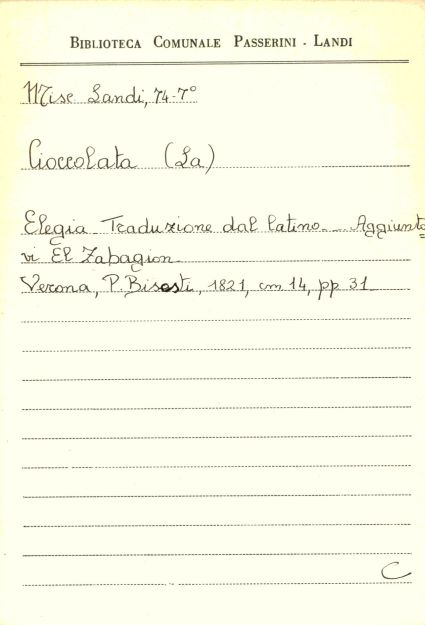 BIBLIOTECA COMUNALE PASSERINI - LANDI
Misc Landi, 74-7°
Cioccolata (La)
Elegia - Traduzione dal latino - Aggiunto=
vi El Zabagion -
Verona, P. Bisesti, 1821, cm 14, pp 31
C